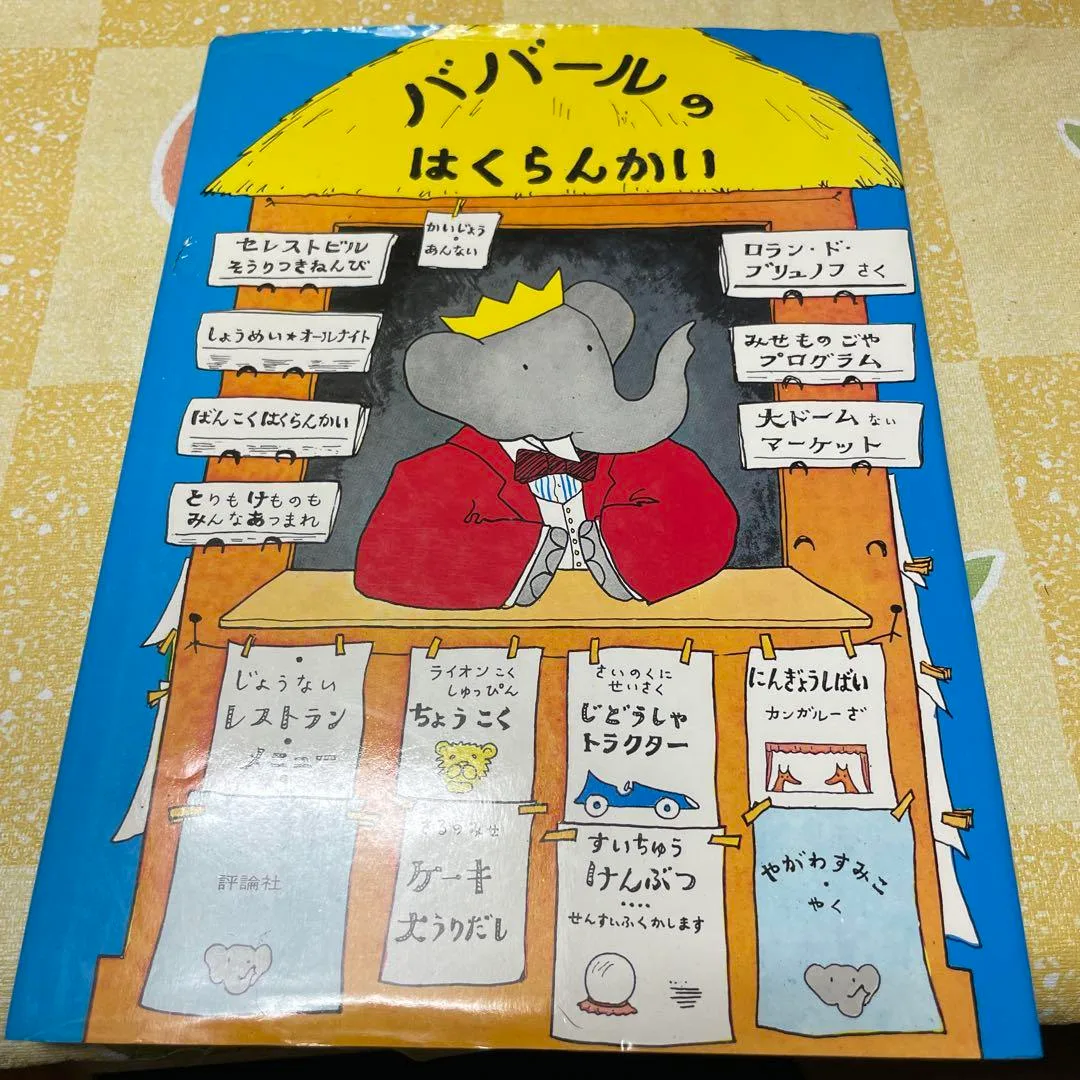 ババールの
はくらんかい
かいじょう
・
あんない
セレストビル
そうりつきねんび
しょうめい★オールナイト
ばんこくはくらんかい
とりもけものも
みんなあつまれ
ロラン・ド・
ブリュノフ さく
みせものごや
プログラム
大ドームない
マーケット
・
じょうない
レストラン
・
メニュー
ライオンこく
しゅっぴん
ちょうこく
さいのくに
せいさく
じどうしゃ
トラクター
にんぎょうしばい
カンガルーざ
評論社
さるのみせ
ケーキ
大うりだし
すいちゅう
けんぶつ
····
せんすいふくかします
やがわすみこ
・
やく